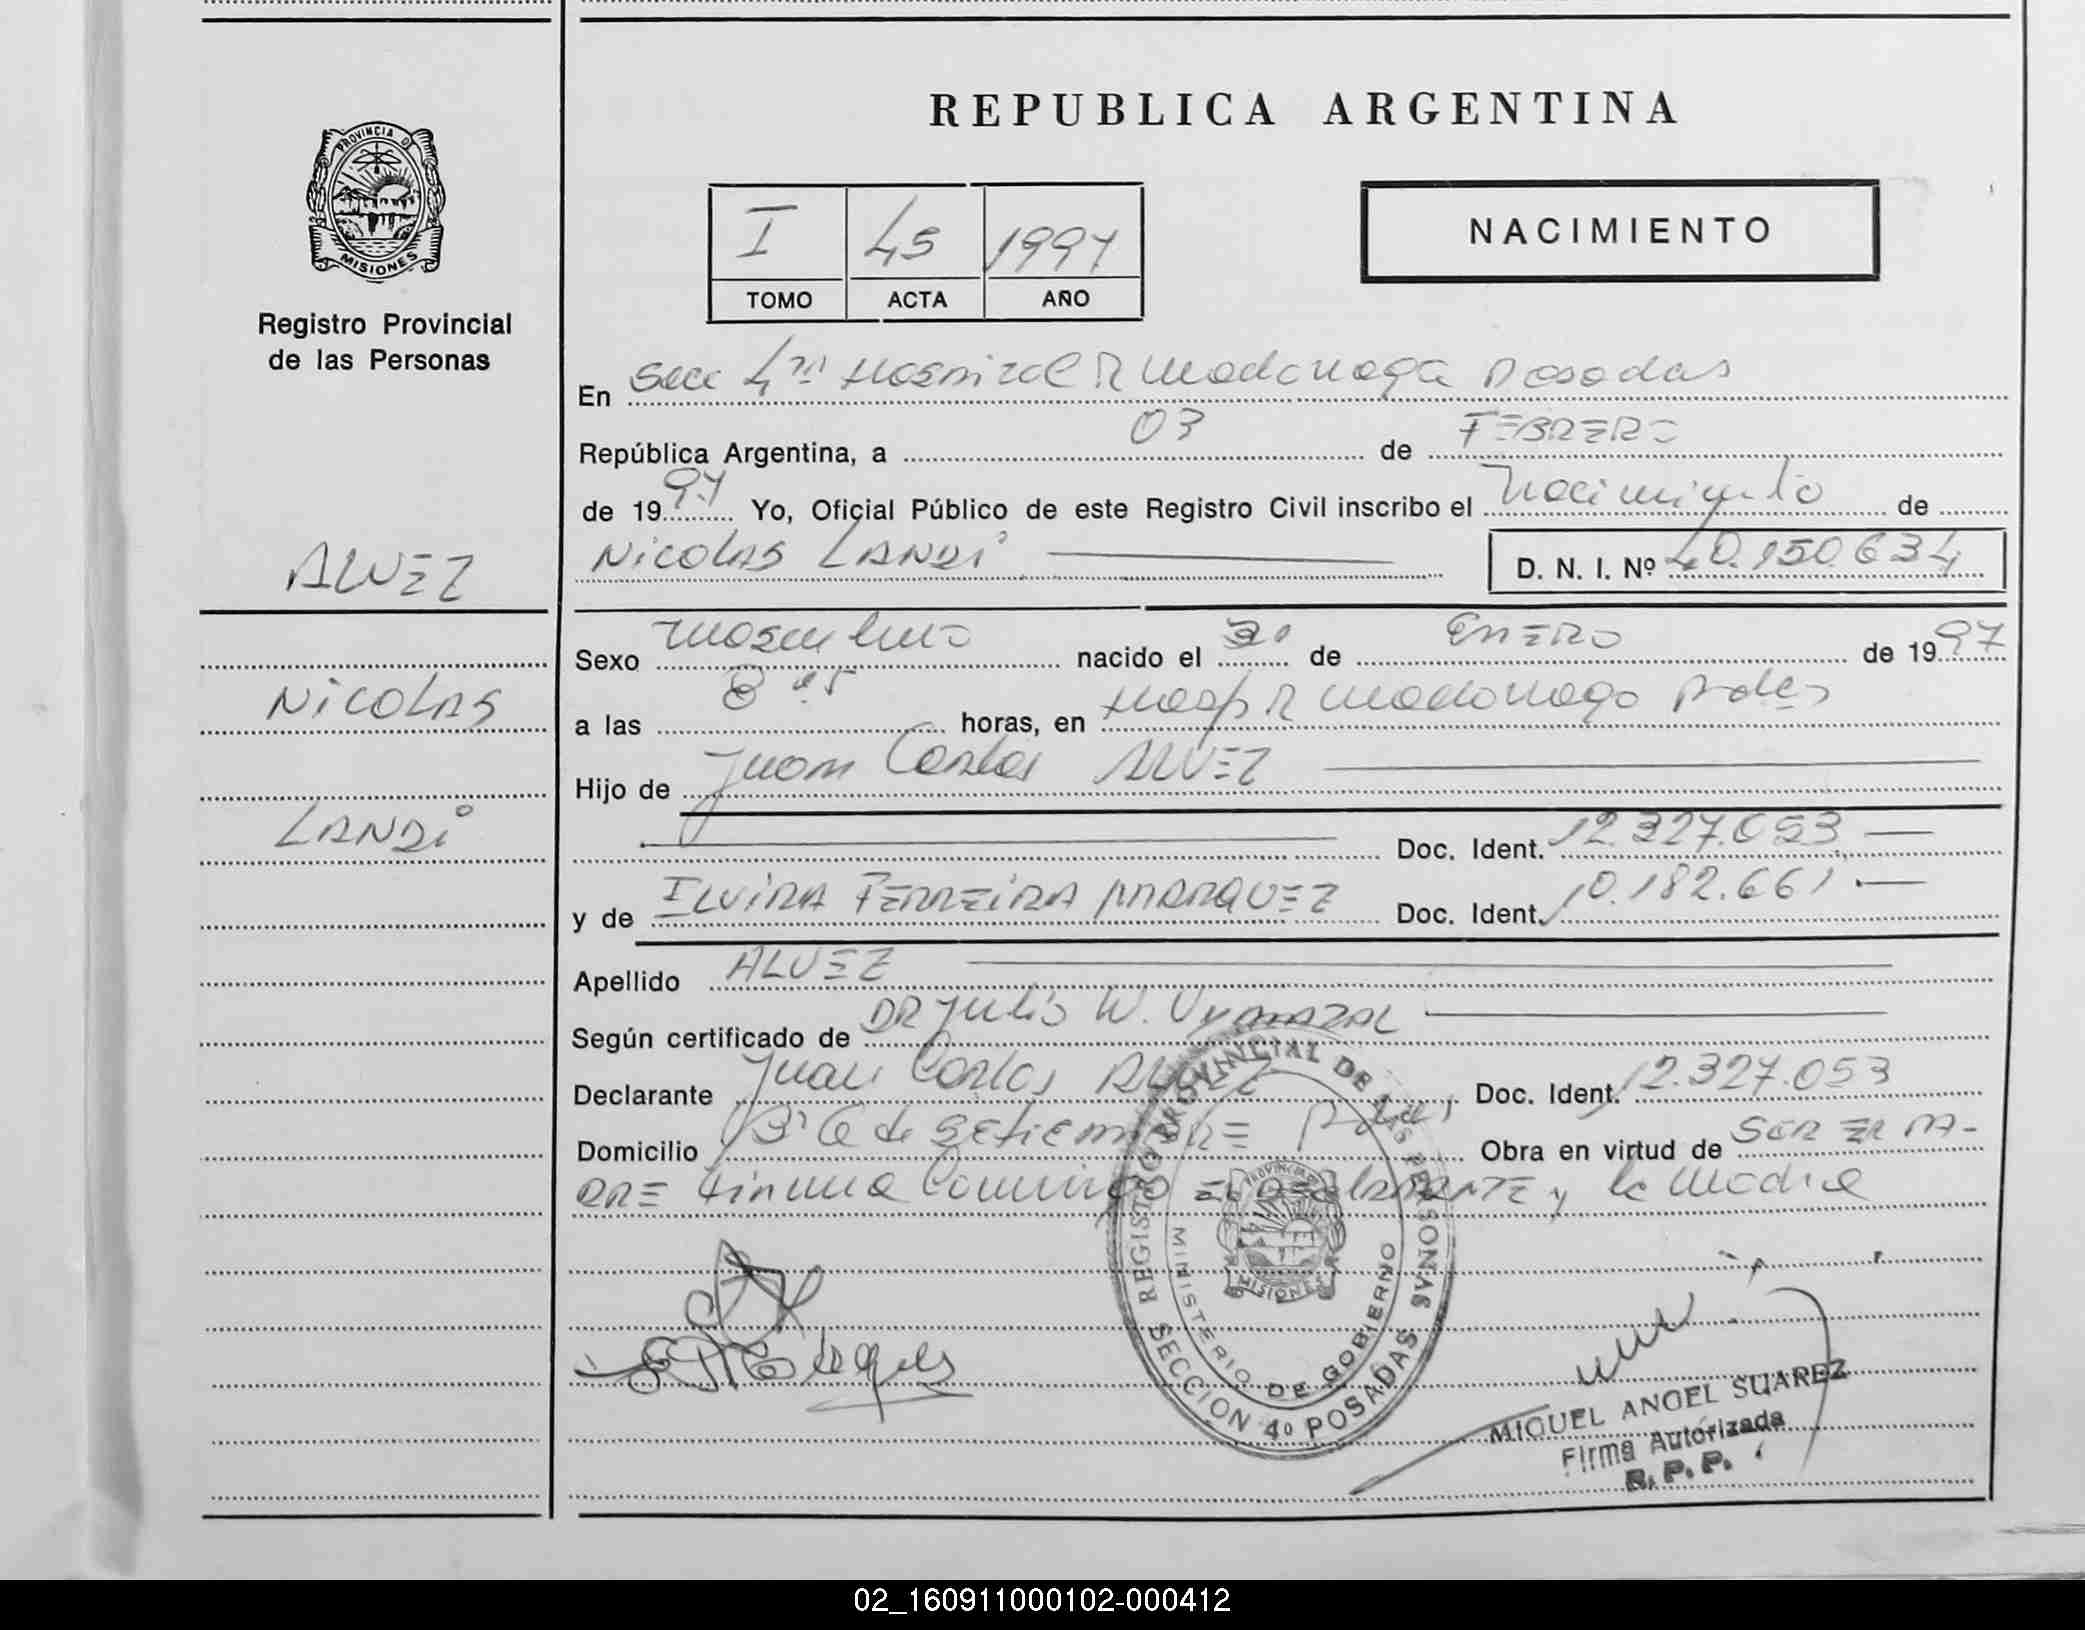 REPUBLICA ARGENTINA
PROVINCIA DE
MISIONES
Registro Provincial
de las Personas
I 45 1997
TOMO ACTA AÑO
NACIMIENTO
En Secc 4ta Hospital R Madariaga Posadas
República Argentina, a 03 de FEBRERO
de 1997 Yo, Oficial Público de este Registro Civil inscribo el Nacimiento de
ALVEZ
NICOLAS LANDI
D. N. I. Nº 40.150.634
Sexo Masculino nacido el de ENERO de 1997
NICOLAS
a las 8 horas, en Hosp R Madariaga Pdas
Hijo de Juan Carlos ALVEZ
LANDI
Doc. Ident. 12.327.053
y de ELVIRA FERREIRA MARQUEZ Doc. Ident. 10.182.661
Apellido ALVEZ
Según certificado de DR Julio W.
Declarante Juan Carlos ALVEZ Doc. Ident. 12.327.053
Domicilio de SETIEMBRE Pdas Obra en virtud de SER EL PA-
DRE Firma Conmigo EL DECLARANTE y la Madre
REGISTRO PROVINCIAL DE LAS PERSONAS
MINISTERIO DE GOBIERNO
PROVINCIA
MISIONES
SECCION 4º POSADAS
MIGUEL ANGEL SUAREZ
Firma Autorizada
R. P. P.
02_160911000102-000412